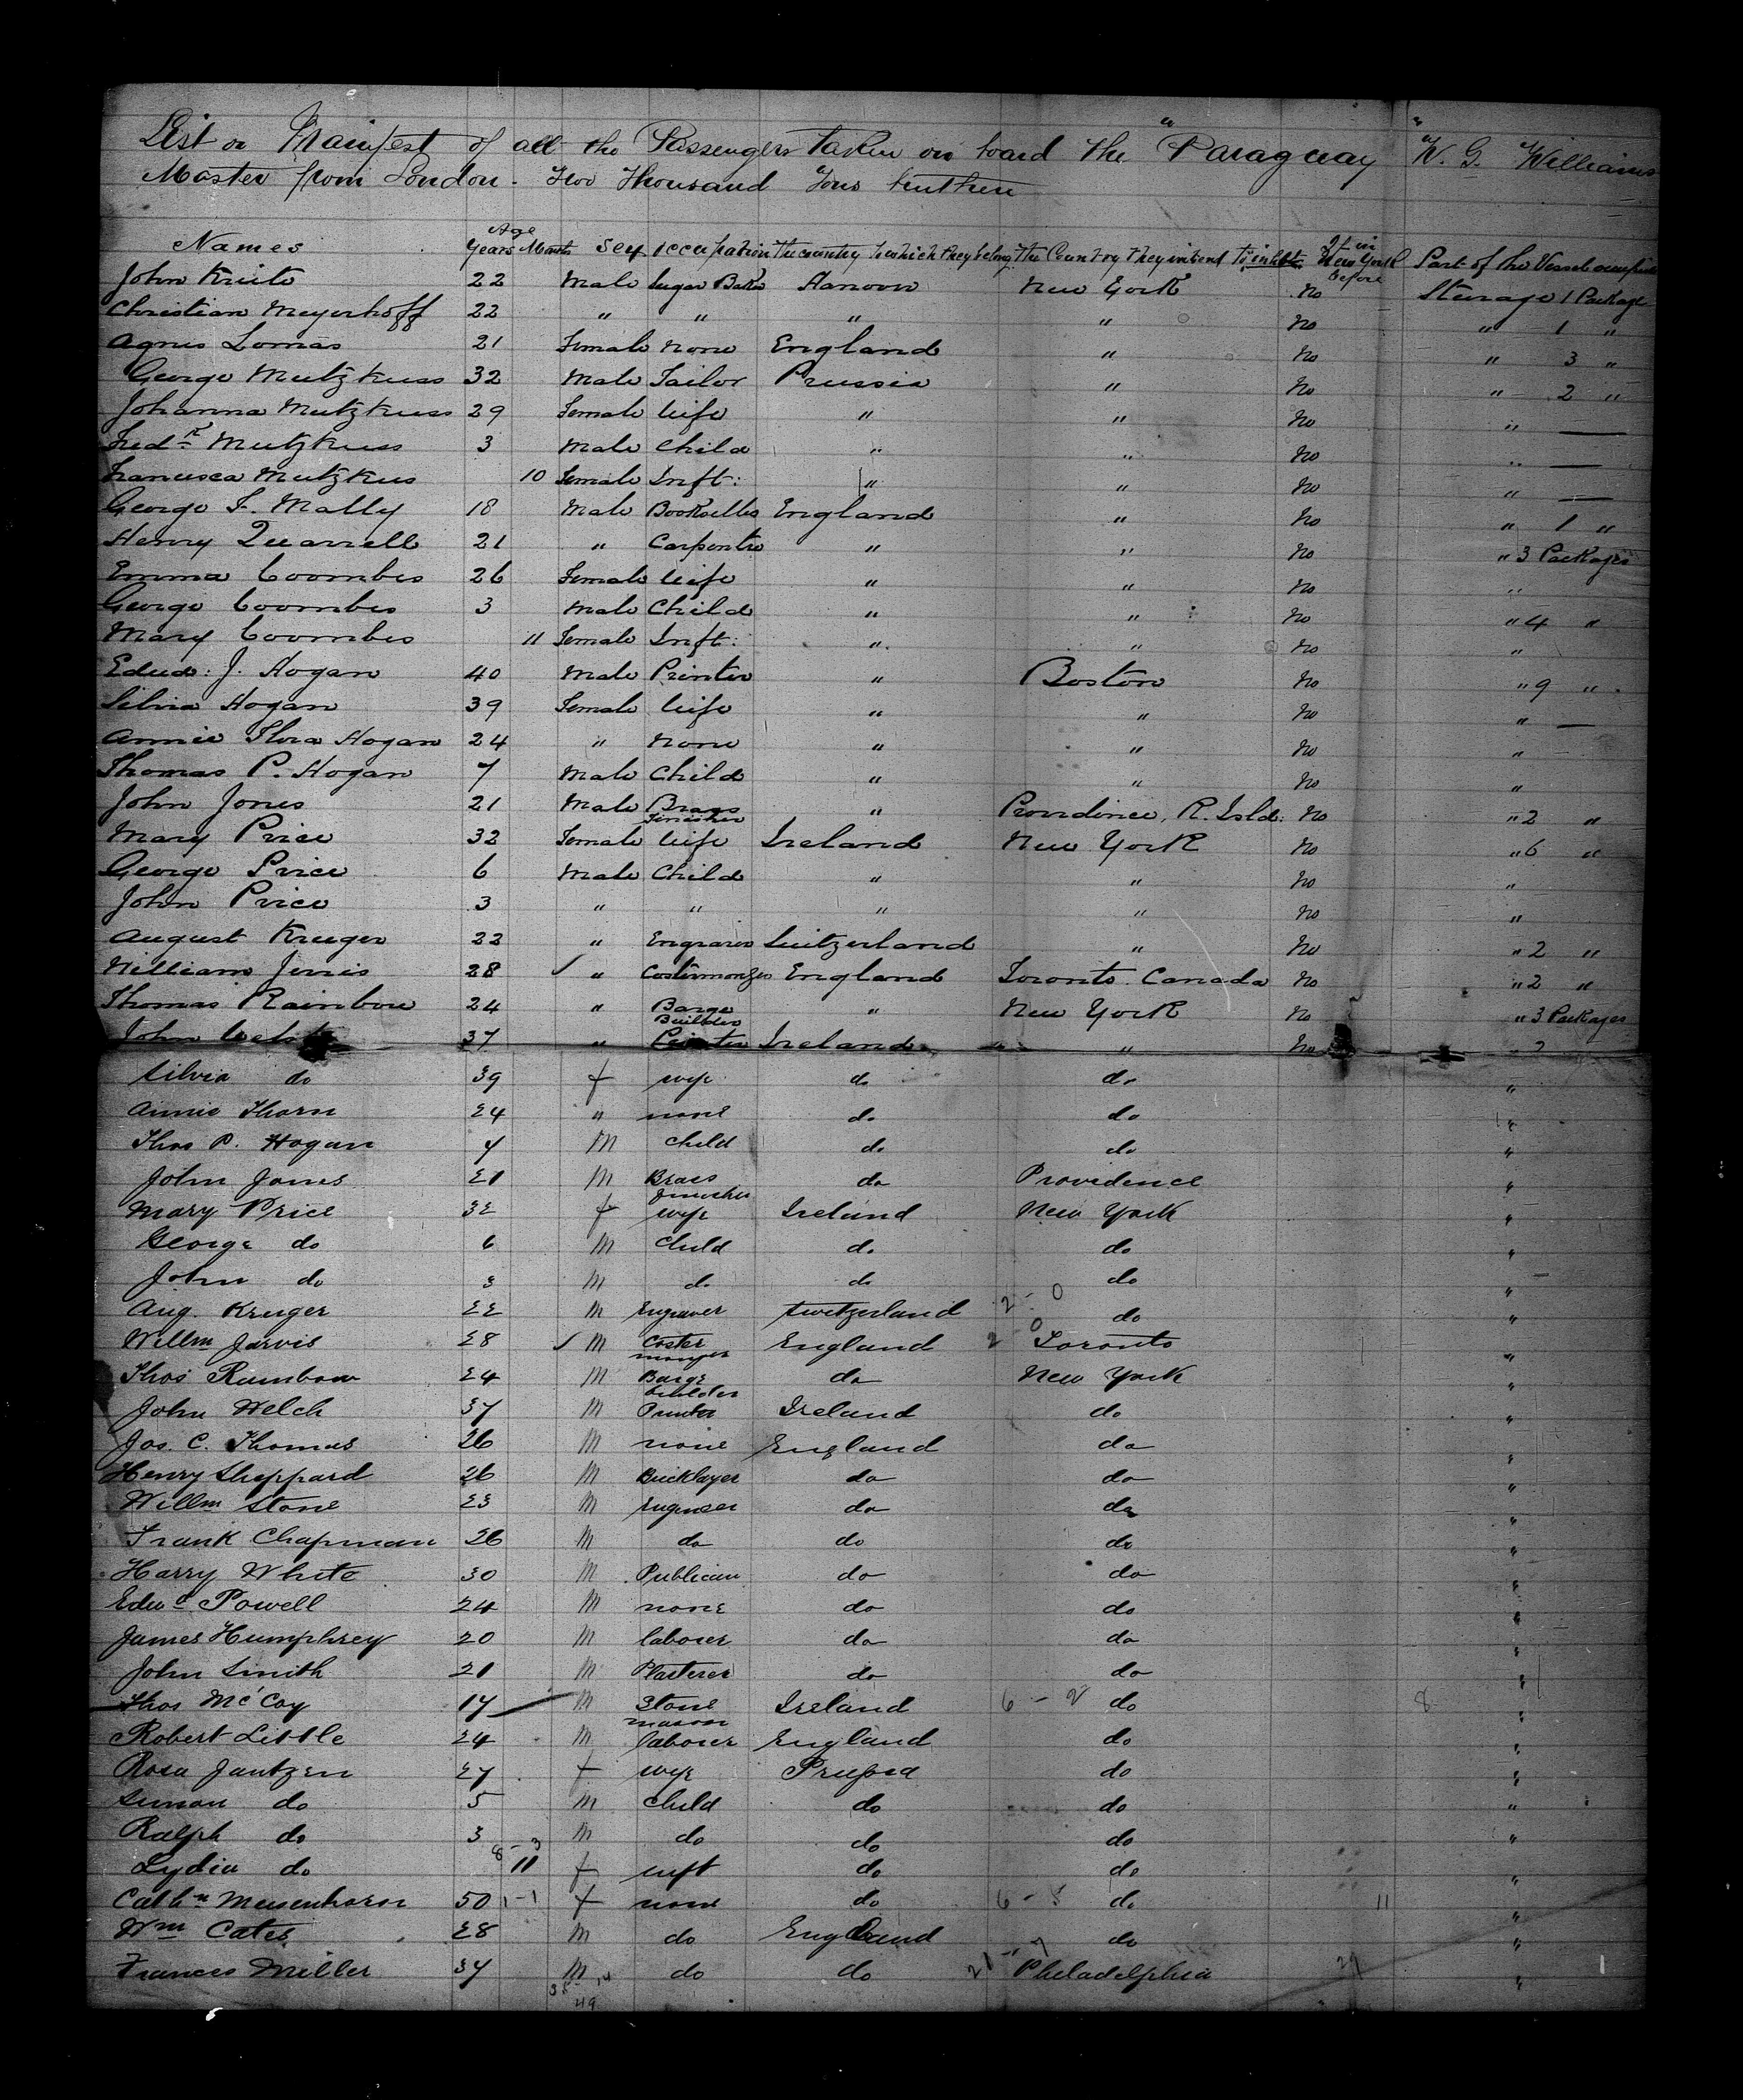 List or Manifest of all the Passengers taken on board the "Paraguay" W. G. Williams
Master from London. Two Thousand Tons burthen
Names Age Years Months Sex occupation The country to which they belong The Country they intend to inhabit If in New York before Part of the Vessel occupied
John Kruite 22 Male Sugar Baker Hanovr New York No Sterage 1 Package
Christian Meyerhoff 22 " " " " No " 1 "
Agnes Lomas 21 Female None England " No " 3 "
George Mutzkuss 32 Male Tailor Prussia " No " 2 "
Johanna Mutzkuss 29 Female Wife " " No " —
Fredk Mutzkuss 3 Male Child " " No " —
Francisca Mutzkus 10 Female Inft: " " No " —
George F. Mally 18 Male Bookseller England " No " 1 "
Henry Quarrell 21 " Carpenter " " No " 3 Packages
Emma Coombes 26 Female Wife " " No "
George Coombes 3 Male Child " " No " 4 "
Mary Coombes 11 Female Inft: " " No "
Edwd: J. Hogan 40 Male Printer " Boston No " 9 "
Silvia Hogan 39 Female Wife " " No " —
Annie Thorn Hogan 24 " None " " No "
Thomas P. Hogan 7 Male Child " " No "
John Jones 21 Male Brass Finisher " Providence, R. Isld: No " 2 "
Mary Price 32 Female Wife Ireland New York No " 6 "
George Price 6 Male Child " " No "
John Price 3 " " " " No "
August Kruger 22 " Engraver Switzerland " No " 2 "
William Jervis 28 " Costermonger England Toronto. Canada No " 2 "
Thomas Rainbow 24 " Barge Builder " New York No " 3 Packages
John Welsh 37 " Printer Ireland " No " 2
Silvia do 39 f wife do do "
Annie Thorn 24 " none do do "
Thos P. Hogan 7 M child do do "
John Jones 21 M Brass finisher do Providence "
Mary Price 32 f wife Ireland New York "
George do 6 M Child do do "
John do 3 M do do do "
Aug. Kruger 22 M Engraver Switzerland 2 - 0 do "
Willm Jarvis 28 ✓ M Coster monger England 2 0 Toronto "
Thos Rumbow 24 M Barge builder do New York "
John Welch 37 M Printer Ireland do "
Jos. C. Thomas 26 M none England do "
Henry Sheppard 26 M Bricklayer do do "
Willm Stone 23 M Engineer do do "
Frank Chapman 26 M do do do "
Harry White 30 M Publican do do "
Edwd Powell 24 M none do do "
James Humphrey 20 M laborer do do "
John Smith 21 M Plasterer do do "
Thos McCoy 17 M Stone mason Ireland 6 - 2 do 8 "
Robert Little 24 M laborer England do "
Rosa Jantzen 27 f wife Prussia do "
Simon do 5 M child do do "
Ralph do 3 M do do do "
Lydia do 8 - 3 11 f inft do do "
Cathn Meisenhorn 50 1 - 1 f none do 6 - 5 do 11 "
Wm Cates 28 M do England do "
Frances Miller 34 M do do 21 - 7 Philadelphia 29 "
35 - 14
49